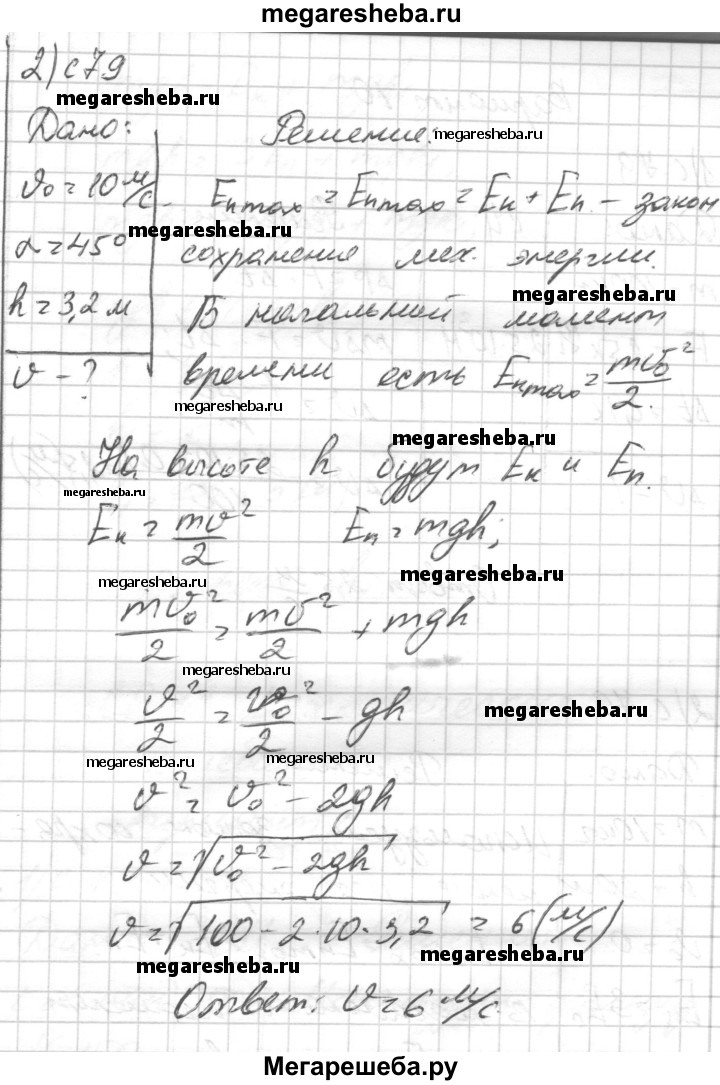 megaresheba.ru
2) с79
megaresheba.ru
Дано: Решение. megaresheba.ru
v₀ = 10 м/с Eпmax = Eпmax = Eк + Eп - закон
megaresheba.ru
α = 45° сохранения мех. энергии.
megaresheba.ru
h = 3,2 м В начальный момент
v - ? времени есть Eпmax = mv₀²/2.
megaresheba.ru
megaresheba.ru
На высоте h будут Eк и Eп.
megaresheba.ru
Eк = mv²/2 Eп = mgh;
megaresheba.ru megaresheba.ru
mv₀²/2 = mv²/2 + mgh
megaresheba.ru
v²/2 = v₀²/2 - gh megaresheba.ru
megaresheba.ru megaresheba.ru
v² = v₀² - 2gh
v = √(v₀² - 2gh)
v = √(100 - 2·10·3,2) = 6 (м/с)
megaresheba.ru megaresheba.ru
Ответ: v = 6 м/с.
Мегарешеба.ру